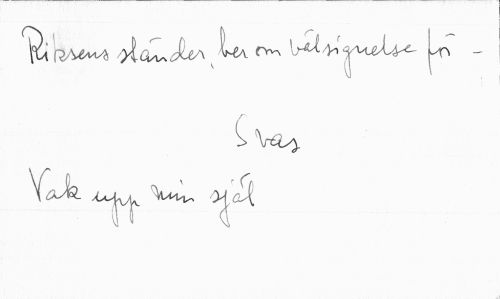 Riksens ständer, ber om välsignelse för -
Svas
Vak upp min själ